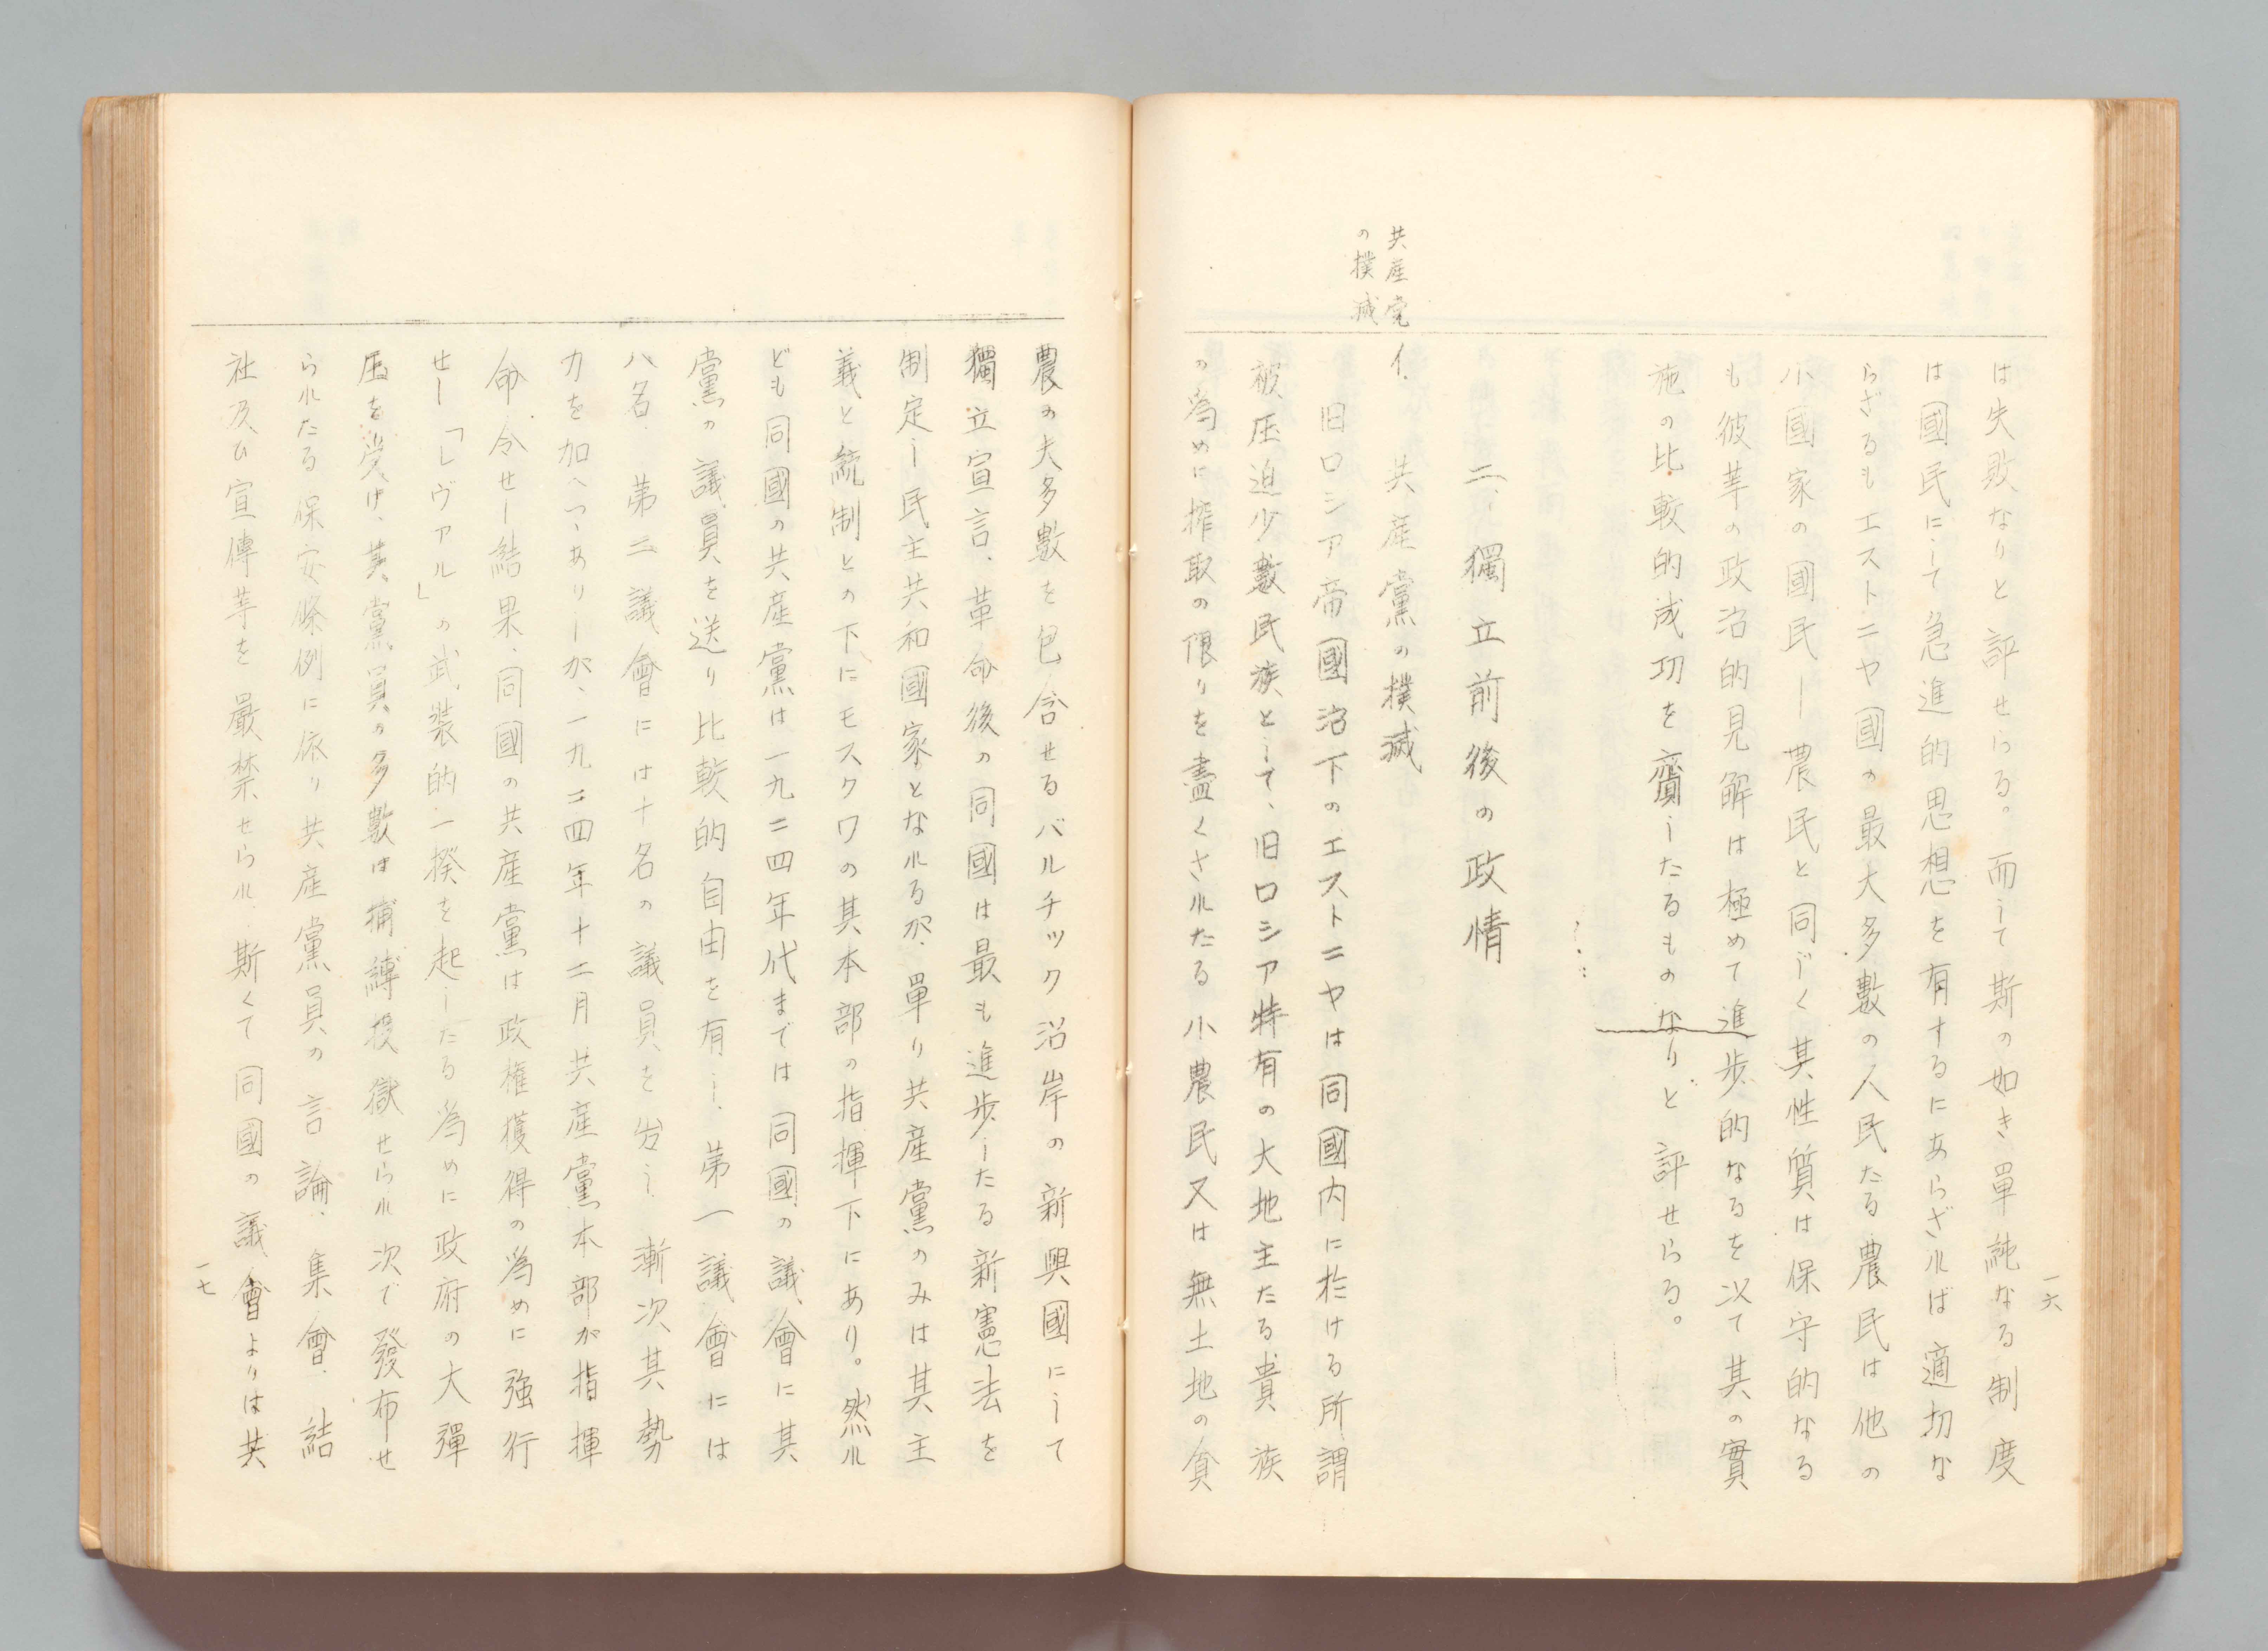 は失敗なりと評せらる。而して斯の如き單純なる制度
は國民にして急進的思想を有するにあらざれば適切な
らざるもエストニヤ國の最大多數の人民たる農民は他の
小國家の國民ー農民と同じく其性質は保守的なる
も彼等の政治的見解は極めて進歩的なるを以て其の實
施の比較的成功を齎したるものなりと評せらる。
二、獨立前後の政情
共産党
の撲滅
イ. 共産黨の撲滅
旧ロシア帝國治下のエストニヤは同國内に於ける所謂
被圧迫少數民族として、旧ロシア特有の大地主たる貴族
の為めに搾取の限りを盡くされたる小農民又は無土地の貧
一六
農の大多數を包含せるバルチック沿岸の新興國にして
獨立宣言、革命後の同國は最も進歩したる新憲法を
制定し民主共和國家となれるが、單り共産黨のみは其主
義と統制との下にモスクワの其本部の指揮下にあり。然れ
ども同國の共産黨は一九二四年代までは同國の議會に其
黨の議員を送り比較的自由を有し、第一議會には
八名、第二議會には十名の議員を出し、漸次其勢
力を加へつゝありしが、一九二四年十二月共産黨本部が指揮
命令せし結果、同國の共産黨は政権獲得の為めに強行
せし「レヴアル」の武装的一揆を起したる為めに政府の大彈
圧を受け、其黨員の多數は捕縛投獄せられ次で發布せ
られたる保安條例に依り共産黨員の言論、集會、結
社及ひ宣傳等を嚴禁せられ、斯くて同國の議會よりは共
一七